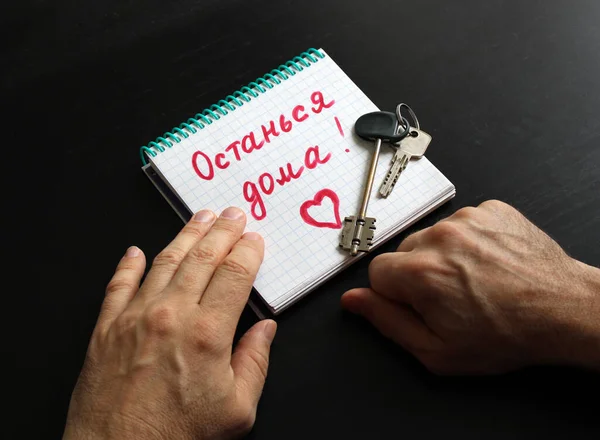 Останься
дома!